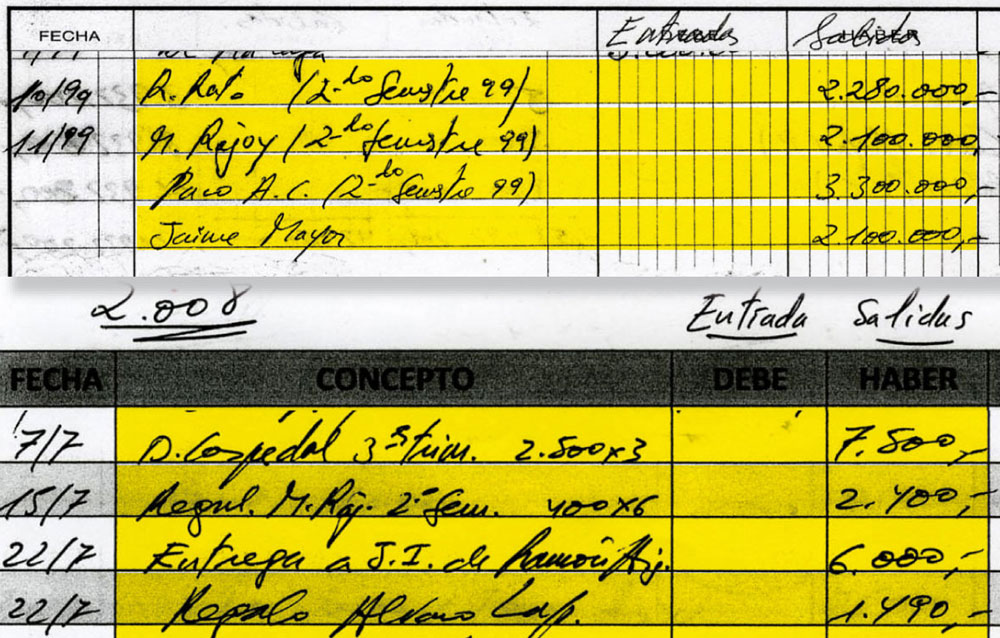 FECHA Entradas Salidas
10/99 R. Rato (2-do Semestre 99) 2.280.000,-
11/99 M. Rajoy (2-do Semestre 99) 2.100.000,
Paco A.C. (2-do Semestre 99) 3.300.000,-
Jaime Mayor 2.100.000,-
2.008 Entrada Salidas
FECHA CONCEPTO DEBE HABER
7/7 D. Cospedal 3º trim. 2.500x3 7.500,-
15/7 Regul. M. Raj. 2º Sem. 400x6 2.400,-
22/7 Entrega a J.I. de Ramón Aj. 6.000,-
22/7 Regalo Alvaro Lap. 1.490,-